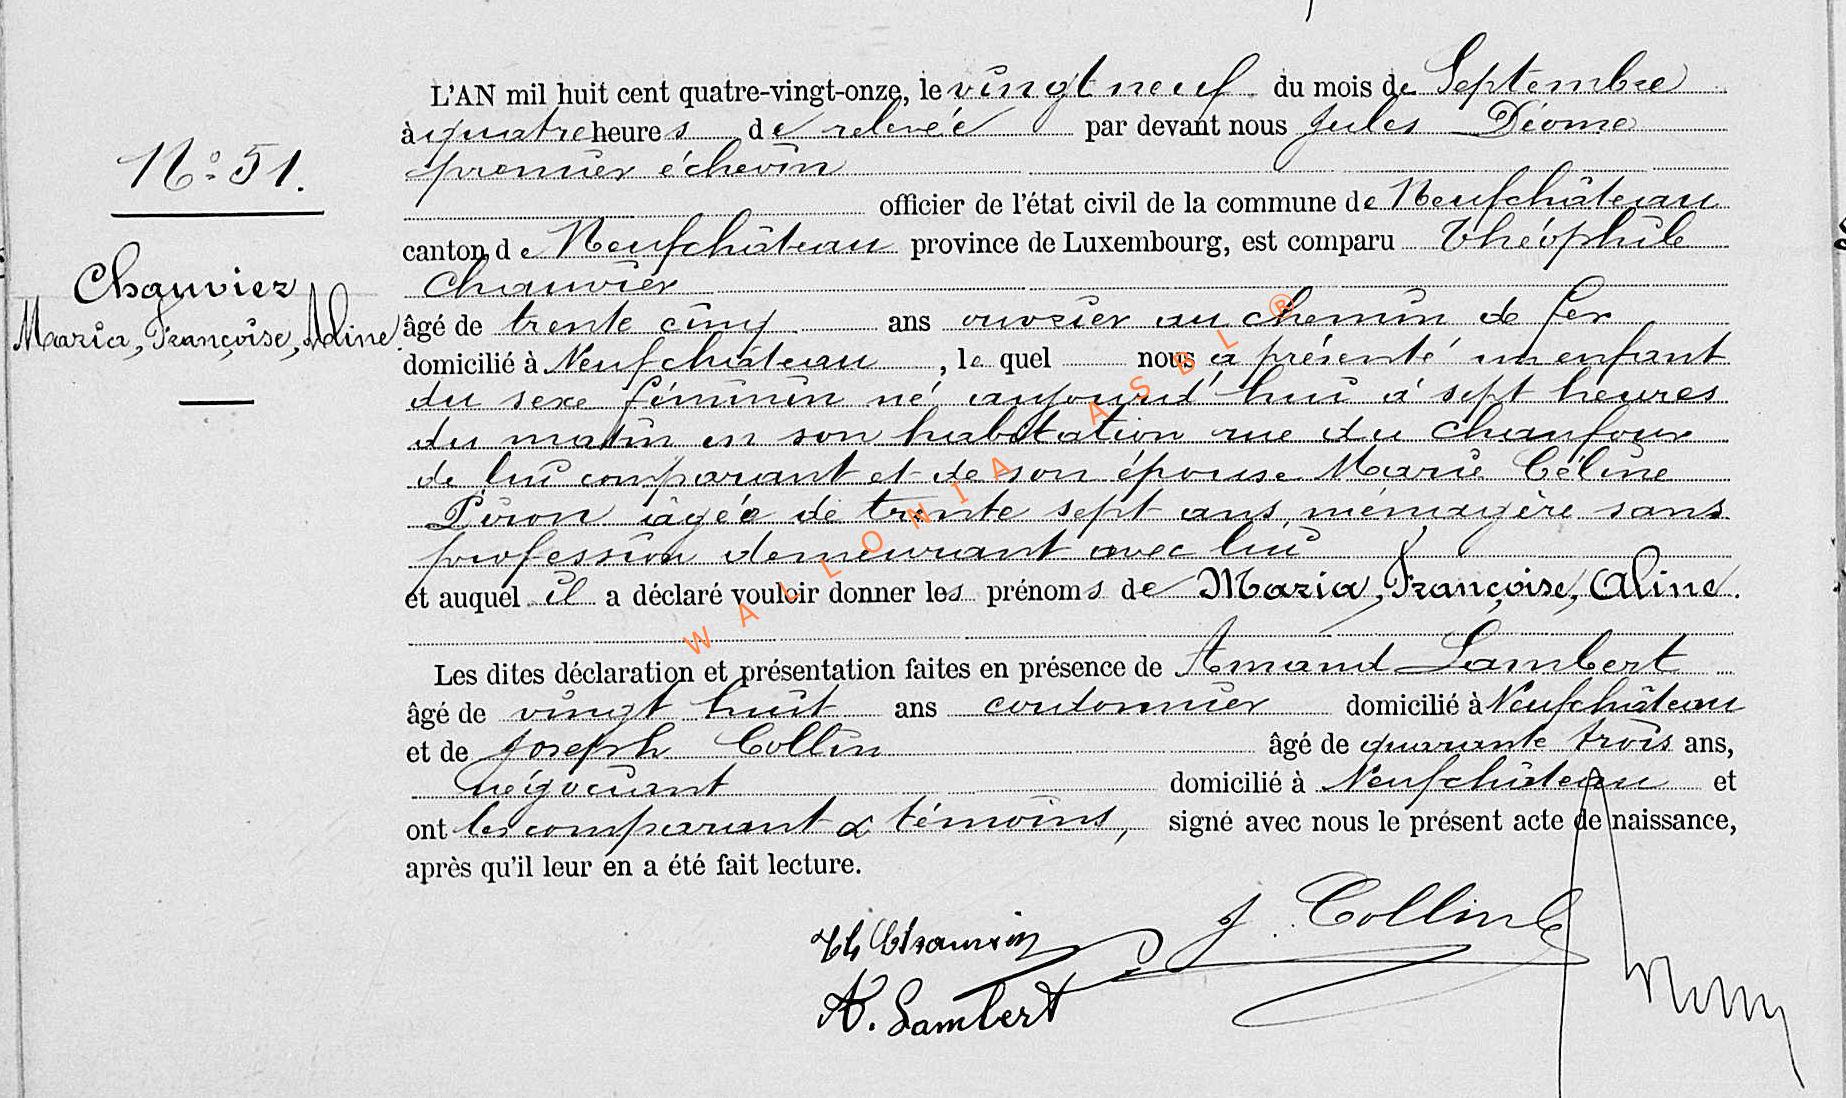 L'AN mil huit cent quatre-vingt-onze, le vingt neuf du mois de Septembre
à quatre heures de relevée par devant nous Jules Diome
premier échevin
N° 51.
officier de l'état civil de la commune de Neufchâteau
canton de Neufchâteau province de Luxembourg, est comparu Théophile
Chauvier
Chauvier
Maria, Françoise, Aline.
âgé de trente cinq ans ouvrier au chemin de fer
domicilié à Neufchâteau, lequel nous a présenté un enfant
du sexe féminin né aujourd'hui à sept heures
du matin en son habitation rue du Chaufour
de lui comparant et de son épouse Marie Céline
Piron âgée de trente sept ans, ménagère sans
profession demeurant avec lui
et auquel il a déclaré vouloir donner les prénoms de Maria, Françoise, Aline.
Les dites déclaration et présentation faites en présence de Amand Lambert
âgé de vingt huit ans cordonnier domicilié à Neufchâteau
et de Joseph Collin âgé de quarante trois ans,
négociant domicilié à Neufchâteau et
ont les comparant & témoins, signé avec nous le présent acte de naissance,
après qu'il leur en a été fait lecture.
Th Chauvier J. Collin
A. Lambert
WALLONIA ASBL ®